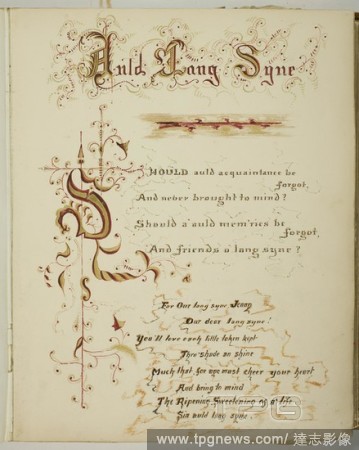 Auld Lang Syne
SHOULD auld acquaintance be
forgot,
And never brought to mind?
Should a'auld mem'ries be
forgot,
And friends o' lang syne?
For Our lang syne, Jenny
Our dear lang syne!
You'll love each little token kept
Thro' shade or shine
Much that for aye must cheer your heart
And bring to mind
The Ripening Sweetening of life
Sin auld lang syne.
www.tpgnews.com / 達志影像